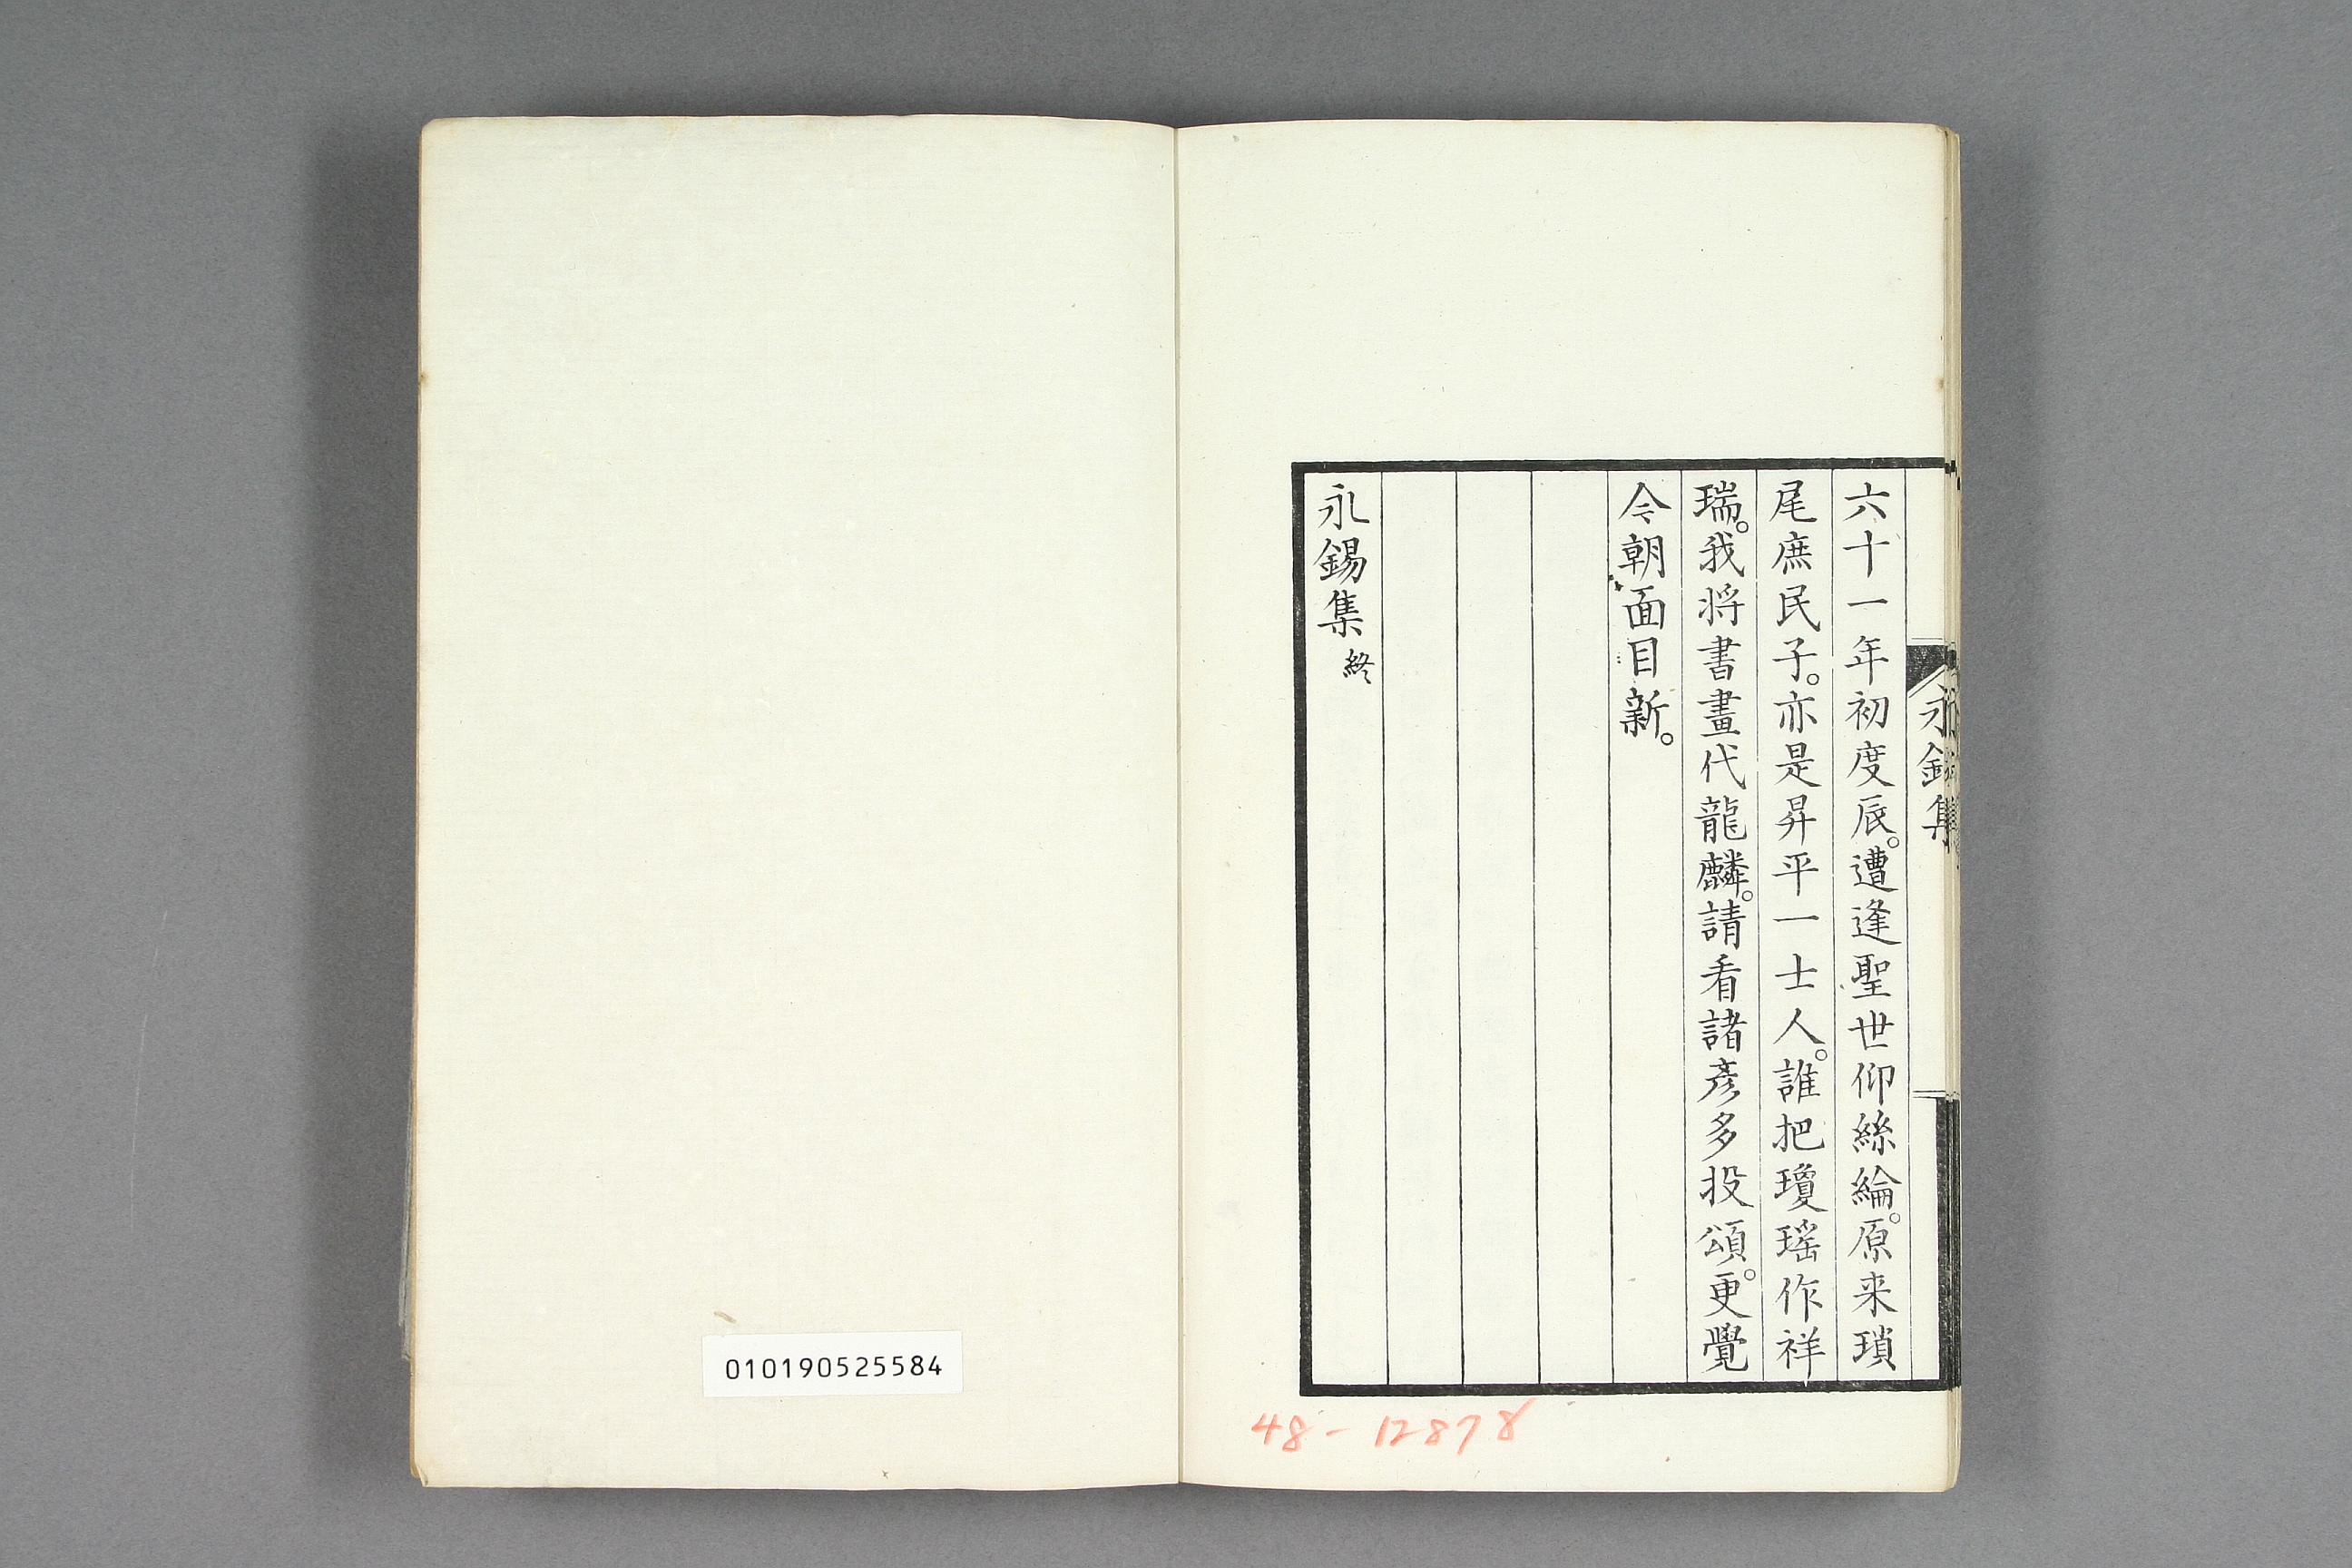 六十一年初度辰。遭逢聖世仰絲綸。原来瑣
尾庶民子。亦是昇平一士人。誰把瓊瑤作祥
瑞。我将書畫代龍麟。請看諸彥多投頌。更覺
今朝面目新。
永錫集終
永錫集
48-12878
010190525584